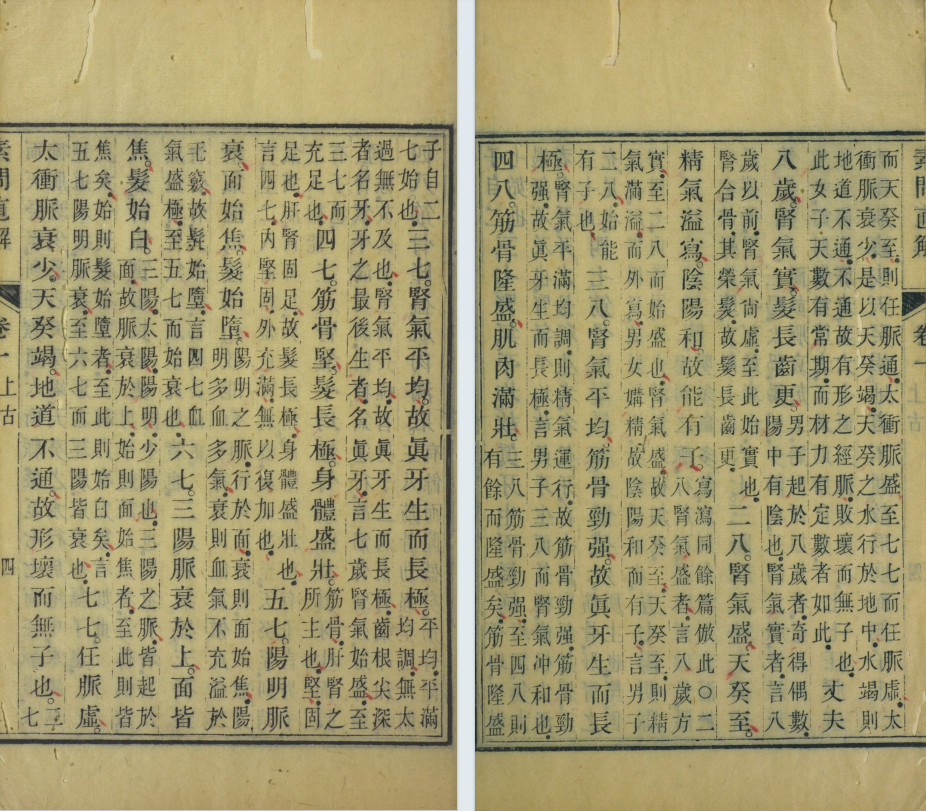 子自二
七始也
三七。腎氣平均。故眞牙生而長極。
平均平滿
均調無太
過無不及也腎氣平均故眞牙生而長極齒根尖深
者名牙牙之最後生者名眞牙言七歲腎氣始盛至
三七而
充足也
四七。筋骨堅。髮長極。身體盛壯。
筋骨肝腎之
所主也堅固
足也肝腎固足故髮長極身體盛壯也
言四七內堅固外充滿無以復加也
五七。陽明脈
衰。面始焦。髮始墮。
陽明之脈行於面衰則面始焦陽
明多血多氣衰則血氣不充溢於
毛竅故髮始墮言四七血
氣盛極至五七而始衰也
六七。三陽脈衰於上。面皆
焦。髮始白。
三陽太陽陽明少陽也三陽之脈皆起於
面故脈衰於上始則面始焦者至此則皆
焦矣始則髮始墮者至此則始白矣言
五七陽明脈衰至六七而三陽皆衰也
七七。任脈虛。
太衝脈衰少。天癸竭。地道不通。故形壞而無子也。
二
七
素問直解 卷一 上古 四
而天癸至則任脈通太衝脈盛至七七而任脈虛太
衝脈衰少是以天癸竭天癸之水行於地中水竭則
地道不通不通故有形之經脈敗壞而無子也
此女子天數有常期而材力有定數者如此
丈夫
八歲。腎氣實。髮長齒更。
男子起於八歲者奇得偶數
陽中有陰也腎氣實者言八
歲以前腎氣尚虛至此始實也
腎合骨其榮髮故髮長齒更
二八。腎氣盛。天癸至。
精氣溢寫。陰陽和。故能有子。
寫瀉同餘篇倣此○二
八腎氣盛者言八歲方
實至二八而始腎氣盛故天癸至天癸至則精
氣滿溢而外寫男女媾精故陰陽和而有子言男子
二八始能
有子也
三八。腎氣平均。筋骨勁强。故眞牙生而長
極。
腎氣平滿均調則精氣運行故筋骨勁强筋骨勁
强故眞牙生而長極言男子三八而腎氣沖和也
四八。筋骨隆盛。肌肉滿壯。
三八筋骨勁强至四八則
有餘而隆盛矣筋骨隆盛